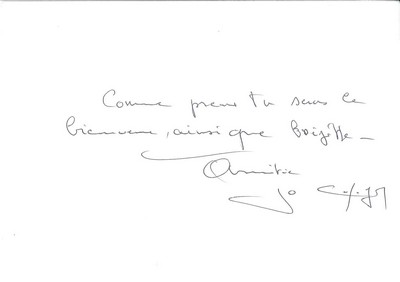 Comme prevu tu seras le
bienvenu, ainsi que Brigitte -
Amitié
Jo